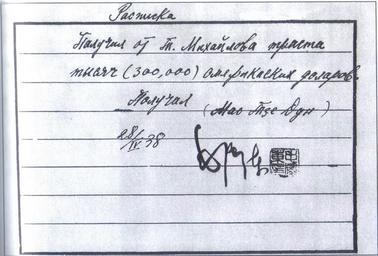 Расписка
Получил от т. Михайлова триста
тысяч (300,000) американских доларов.
Получил (Мао Тзе Дун)
28/IV 38